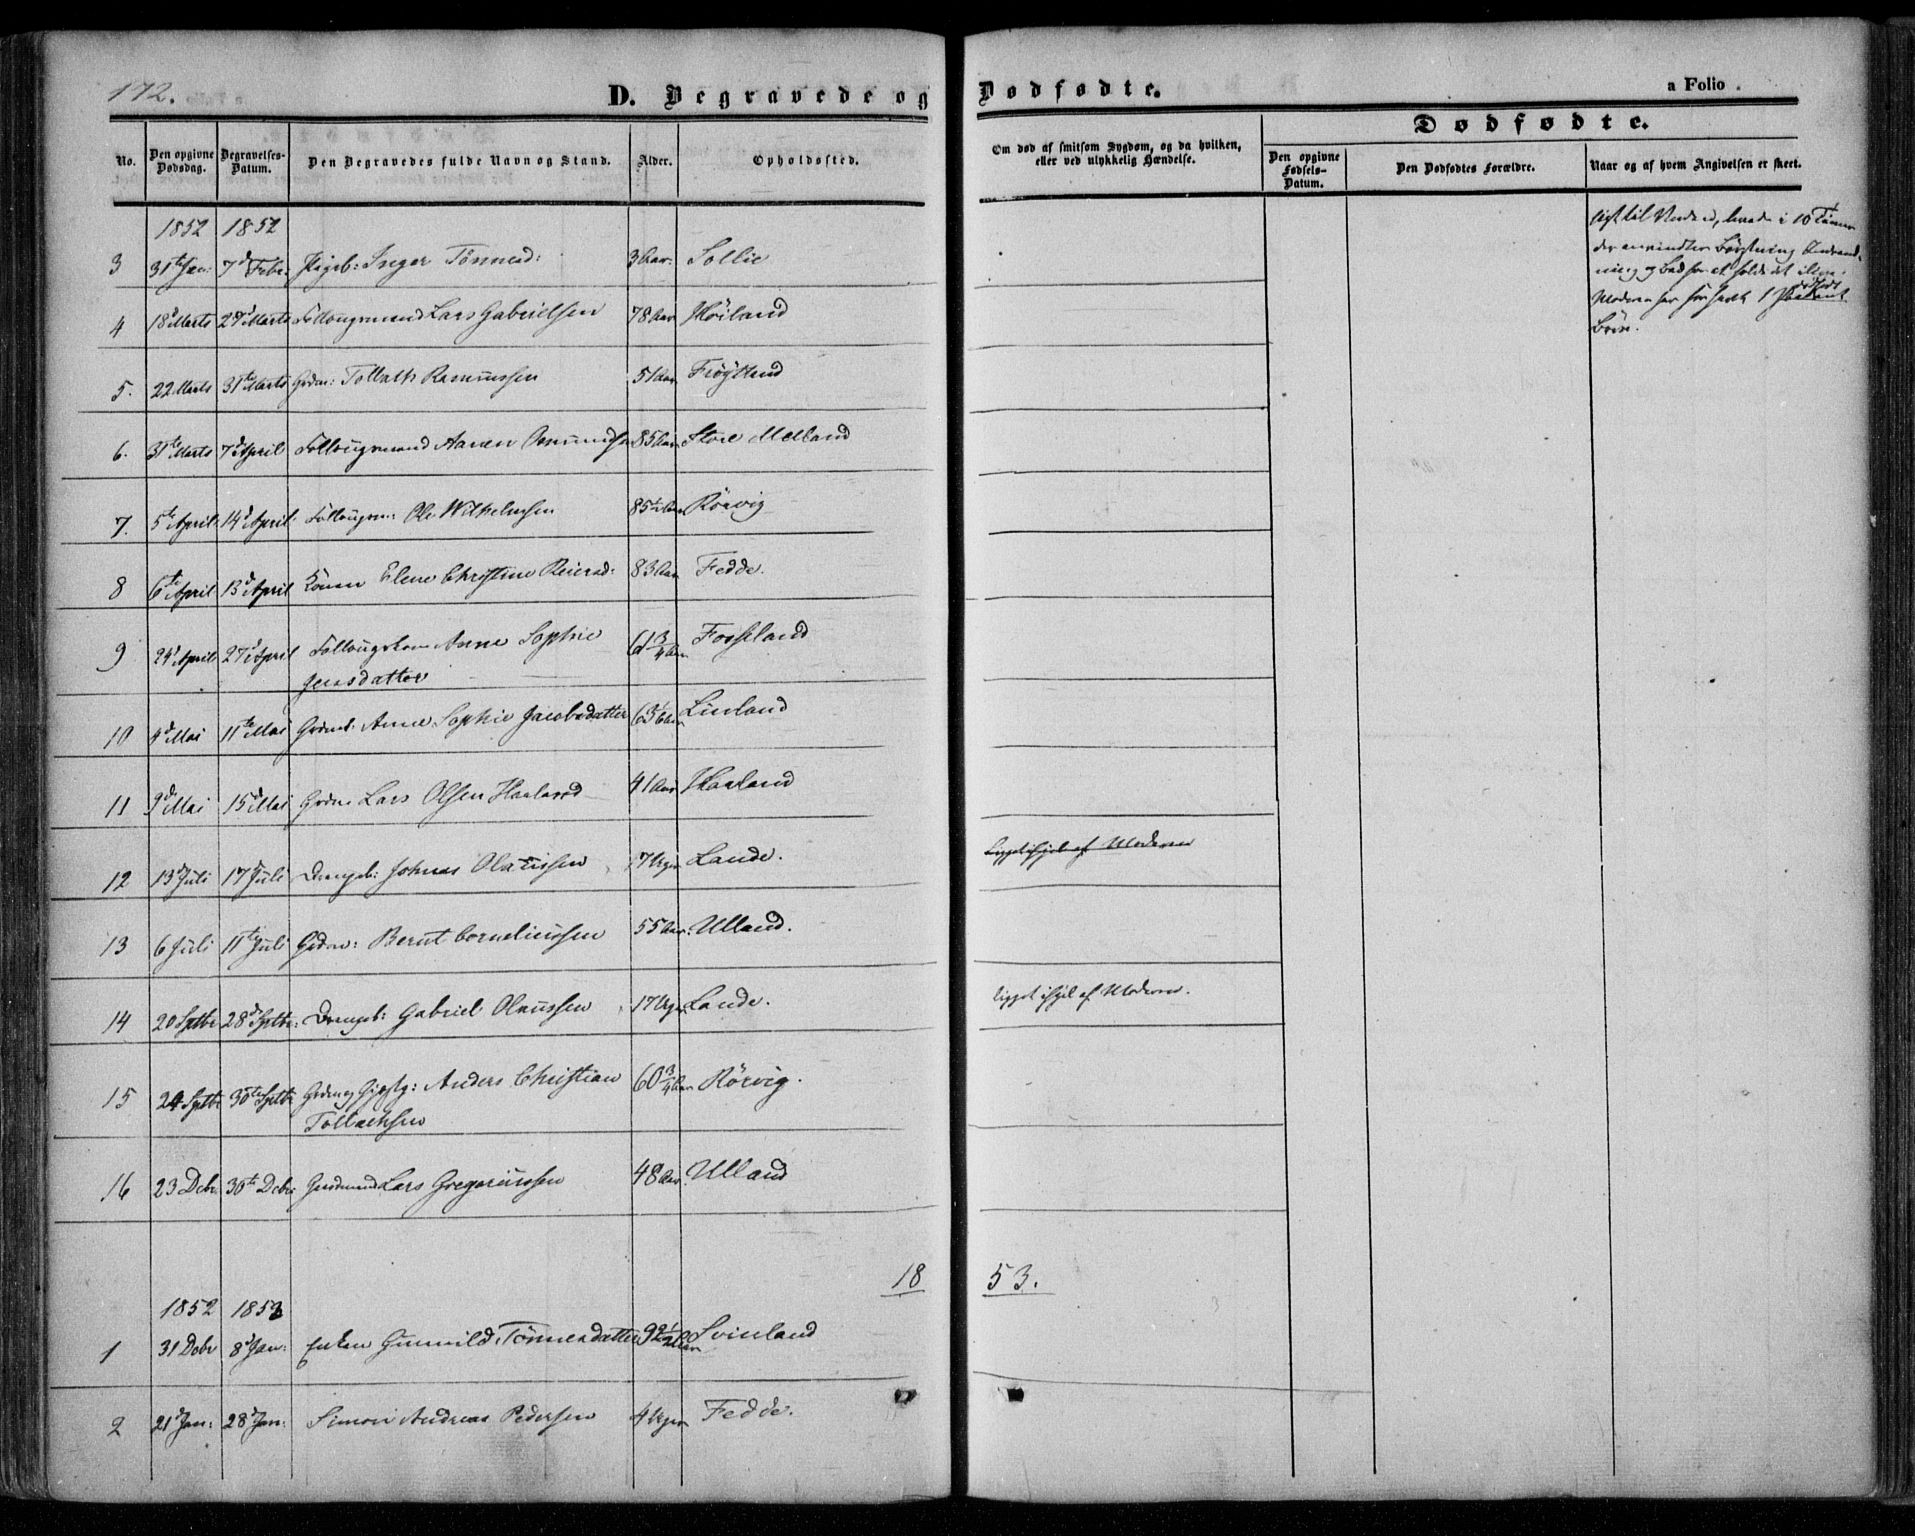 172.
D. Begravede og Dødfødte.
a Folio
Dødfødte.
No.
Den opgivne Dødsdag.
Begravelses-Datum.
Den Begravedes fulde Navn og Stand.
Alder.
Opholdssted.
Om død af smitsom Sygdom, og da hvilken,
eller ved ulykkelig Hændelse.
Den opgivne Fødsels-Datum.
Den Dødfødtes Forældre.
Naar og af hvem Angivelsen er skeet.
1852 1852
3 31te Jan: 7d Febr. Pigeb: Inger Tønnesd: Sollie
4 18d Marts 24d Marts Follougsmand Lars Gabrielsen 78 Aar Høiland
5. 22 Marts 31te Marts Grdm: Tollach Rasmussen 51 Aar Frøÿtland
6. 31te Marts 7d April Follougsmand Aanen Osmundsen 85 Aar Store Melland
7. 5te April 14d April Follougsm: Ole Wilhelmsen 85 Aar Rørvig
8 6te April 13d April Konen Elene Christine Reiersd: 83 Aar Fedde.
9 24d April 27d April Follougskone Anne Sophie 61 3/4 Aar Fosseland
Jensdatter
10 4d Mai 11te Mai Anne Sophie Jacobsdatter Linland
11 9d Mai 15d Mai Grdm: Lars Olsen Haaland 41 Aar Haaland
12 13d Juli 17d Juli Drengeb: Johnas Olaussen 17 Uger Lande. Ligget ihjel af Moderen
13 6 Juli 11te Juli Grdm: Bernt Corneliussen 55 Aar: Ulland.
14 20 Septbr 28d Septbr: Drengeb: Gabriel Olaussen 17 Uger Lande. Ligget ihjel af Moderen.
15 24 Septbr 30te Septbr Anders Christian 60 3/4 Aar Rørvig.
Tollachsen
16 23 Debr 30te Debr Gaardmand Lars Gregoriussen 48 Aar. Ulland
18 53.
1852 1853
1 31 Debr 8d Jan: Enken Gunvild Tønnesdatter 92 1/2 Aar Svinland
2 21d Jan: 28d Jan: Simon Andreas Pedersen 4 Uger Fedde.
Moderen har før født 1
Børn.